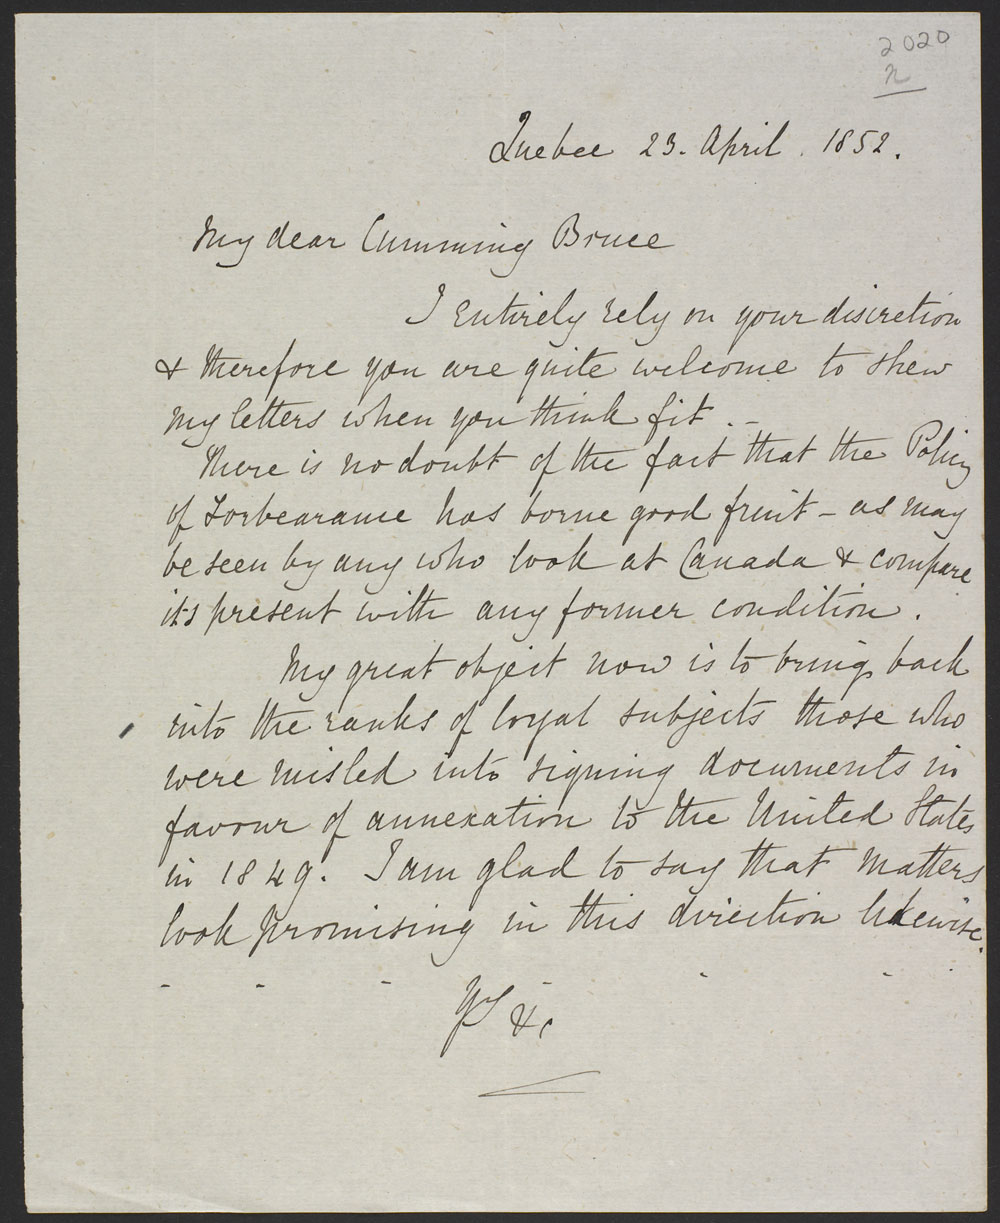 2020
n
Quebec 23. April. 1852.
My dear Cumming Bruce
I entirely rely on your discretion
& therefore you are quite welcome to shew
my letters when you think fit. -
There is no doubt of the fact that the Policy
of Forbearance has borne good fruit - as may
be seen by any who look at Canada & compare
its present with any former condition.
My great object now is to bring back
into the ranks of loyal subjects those who
were misled into signing documents in
favour of annexation to the United States
in 1849. I am glad to say that matters
look promising in this direction likewise.
- - - - - - -
Yrs &c